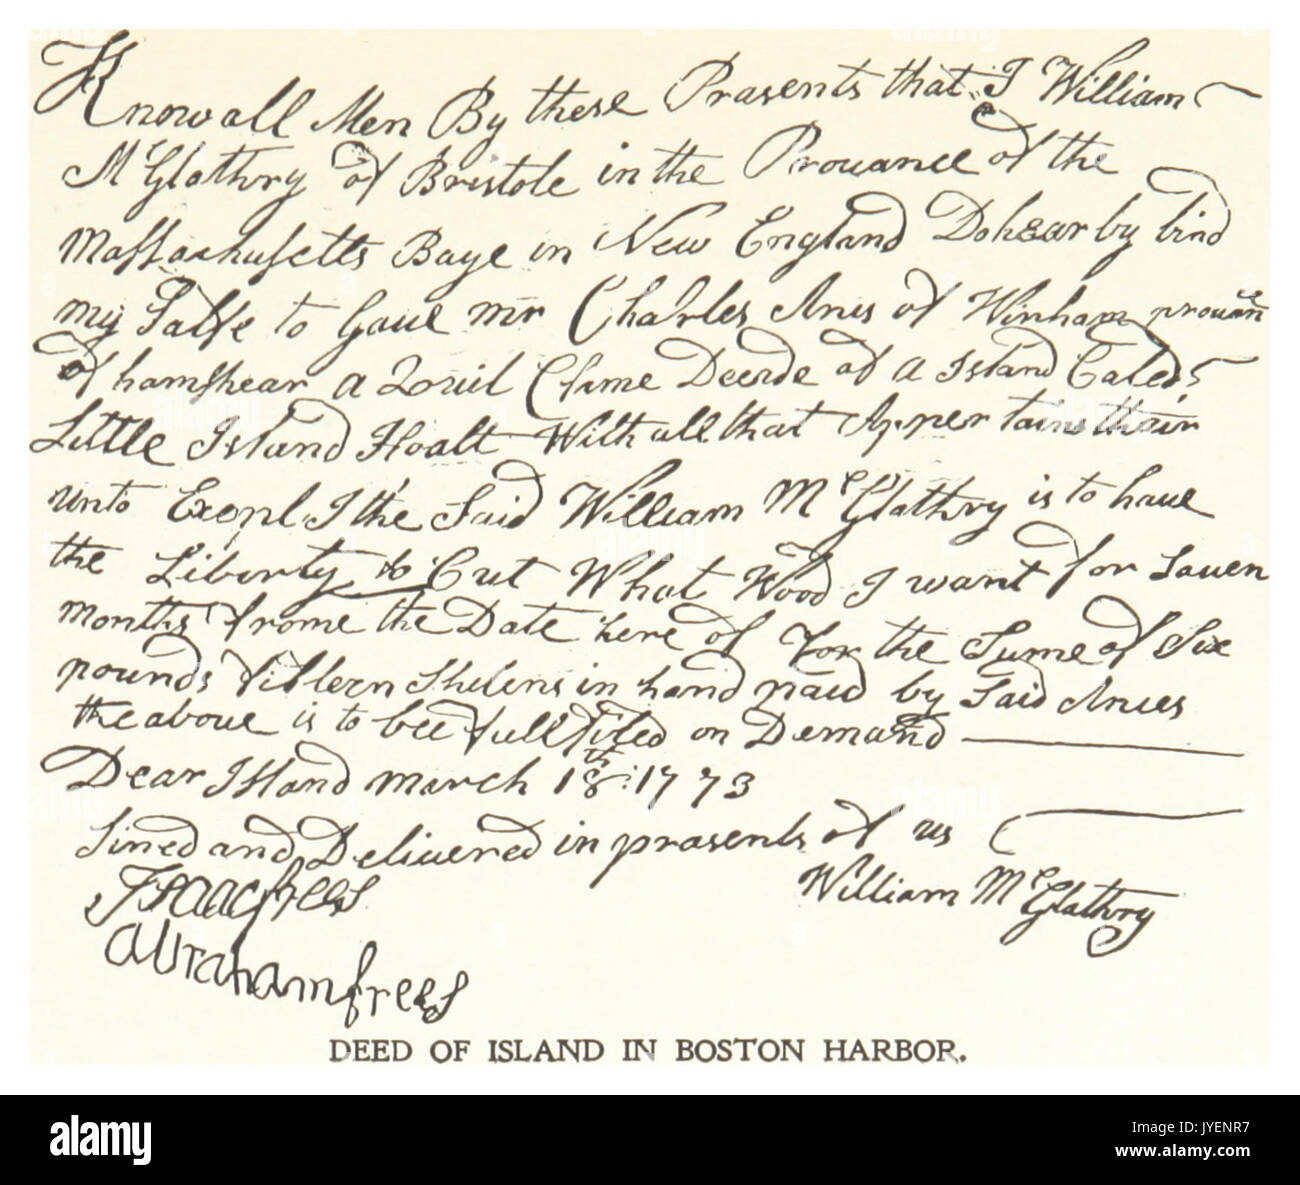 Know all Men By these Prasents that I William
McGlathry of Bristole in the Prouance of the
Massachusetts Baye in New England Do hear by bind
my Salfe to Gaue mr Charles Anis of Winham prouance
of hamshear a Quil Clame Deede of A Island Caled
Little Island Hoalt With all that Apper tains their
unto Exepl I the Said William McGlathry is to haue
the Liberty to Cut What Wood I want for Sauen
months frome the Date here of for the Sume of Six
pounds fifteen Shelens in hand paid by Said Anies
the aboue is to bee full filed on Demand
Dear Island march 18th: 1773
Sined and Deliuered in prasents of us
Isaac frees
William McGlathry
abraham frees
DEED OF ISLAND IN BOSTON HARBOR.
alamy
Image ID: JYENR7
www.alamy.com